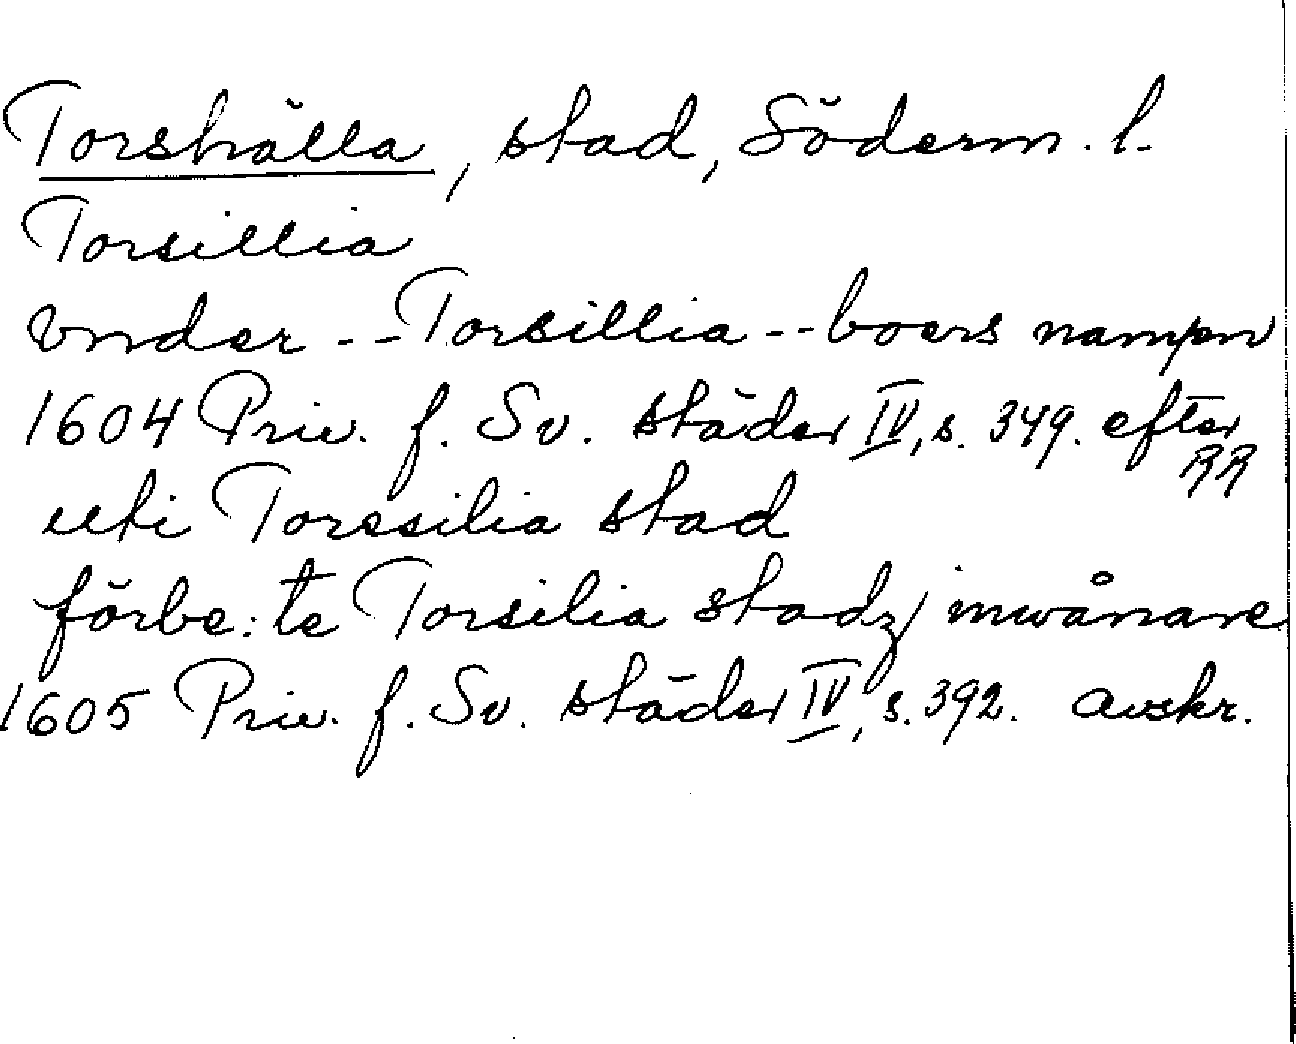 Torshälla, stad, Söderm. l.
Torsillia
Vnder -- Torsillia -- boers nampn
1604 Priv. f. Sv. städer IV, s. 349. efter RR
uti Torssilia stad
förbe:te Torsilia stadz inwånare
1605 Priv. f. Sv. städer IV, s. 392. avskr.